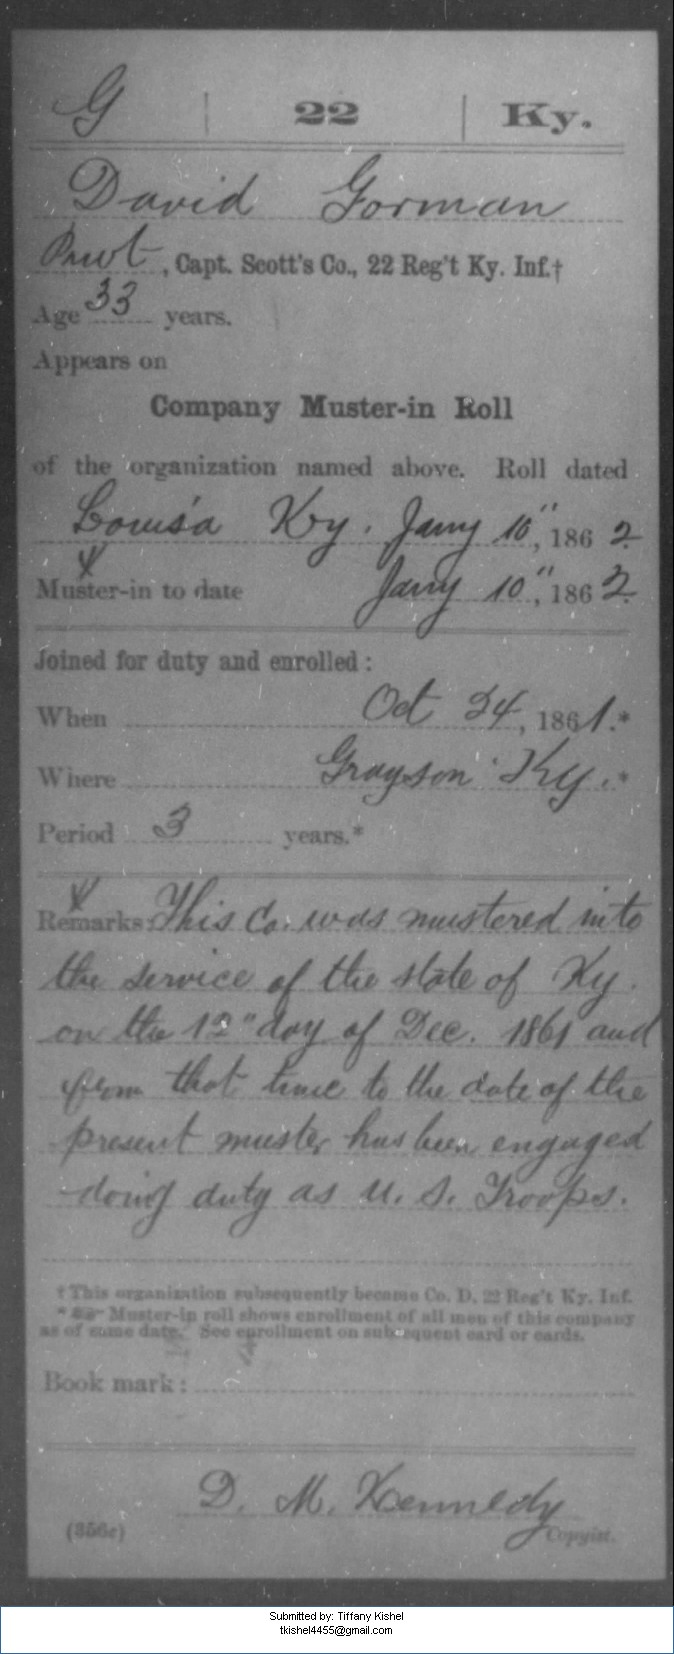 G | 22 | Ky.
David Gorman
Privt, Capt. Scott's Co., 22 Reg't Ky. Inf.†
Age 33 years.
Appears on
Company Muster-in Roll
of the organization named above. Roll dated
Louisa Ky. Jany 10", 1862.
Muster-in to date Jany 10", 1862.
Joined for duty and enrolled:
When Oct 24, 1861.*
Where Grayson Ky.*
Period 3 years.*
Remarks: This Co. was mustered into
the service of the state of Ky.
on the 12" day of Dec. 1861 and
from that time to the date of the
present muster has been engaged
doing duty as U. S. Troops.
† This organization subsequently became Co. D, 22 Reg't Ky. Inf.
* Muster-in roll shows enrollment of all men of this company
as of same date. See enrollment on subsequent card or cards.
Book mark:
D. M. Kennedy
(356c) Copyist.
Submitted by: Tiffany Kishel
tkishel4455@gmail.com